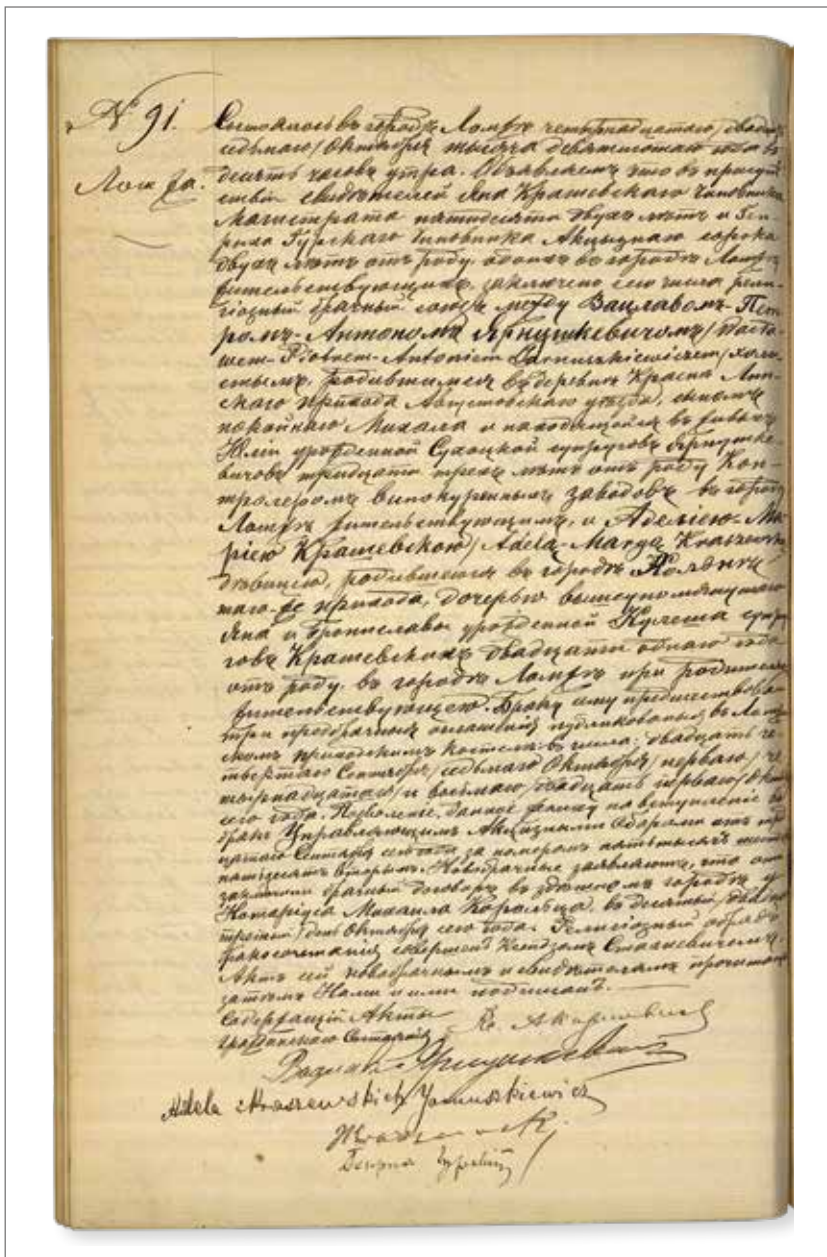 № 91.
Ломжа.
Состоялось въ городѣ Ломжѣ четырнадцатаго /двадцать
седьмаго/ Октября тысяча девятисотаго года въ
десять часовъ утра. Объявляемъ что въ присут-
ствіи свидѣтелей Яна Крашевскаго чиновника
Магистрата пятидесяти двухъ лѣтъ и Ген-
риха Гурскаго чиновника Акцызнаго сорока
двухъ лѣтъ отъ роду, обоихъ въ городѣ Ломжѣ
жительствующихъ, заключено сего числа рели-
гіозный брачный союзъ между Вацлавомъ-Пет-
ромъ-Антономъ Ярнушкевичомъ
Piotrem-Antonim Jarnuszkiewiczem /холо-
стымъ, родившимся въ деревнѣ Красне Лип-
скаго прихода Августовскаго уѣзда, сыномъ
покойнаго Михала и находящейся въ живыхъ
Юліи урожденной Сухоцкой супруговъ Ярнушке-
вичовъ тридцати трехъ лѣтъ отъ роду Кон-
тролеромъ винокуренныхъ заводовъ въ городѣ
Ломжѣ жительствующимъ, и Аделіею-Ма-
ріею Крашевскою /Adela-Marya Kraszewska
дѣвицею, родившеюся въ городѣ
того-же прихода, дочерью вышеупомянутаго
Яна и Брониславы урожденной Кулеша супру-
говъ Крашевскихъ двадцати одного года
отъ роду, въ городѣ Ломжѣ при родителяхъ
жительствующею. Браку сему предшествовали
три предбрачныя оглашенія публикованныя въ Ломжин-
скомъ приходскомъ костелѣ въ числа: двадцать че-
твертаго Сентября /седьмаго Октября/ перваго /че-
тырнадцатаго/ и восьмаго /двадцать перваго/ Октября
сего года. Позволеніе, данное жениху на вступленіе въ
бракъ Управляющимъ Акцизными Сборами отъ
Сентября сего года за номеромъ пять тысячъ шесть
пятьдесятъ вторымъ. Новобрачные заявляютъ, что они
заключили брачный договоръ въ здѣшнемъ городѣ у
Нотаріуса Михаила Корольца, въ десятый /двадцать
третій/ день Октября сего года. Религіозный обрядъ
бракосочетанія совершенъ Ксендзомъ Стаашевичемъ.
Актъ сей новобрачнымъ и свидѣтелямъ прочитанъ
затѣмъ Нами и ими подписанъ.
Содержащій Акты
гражданскаго Состоянія
Ярнушкевичъ
Adela z Kraszewskich Jarnuszkiewicz